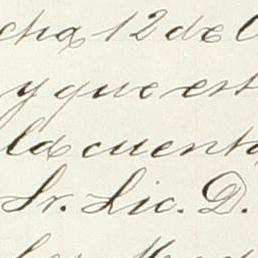 cha 12 de
y que est
la cuenta
Sr. Lic. D.